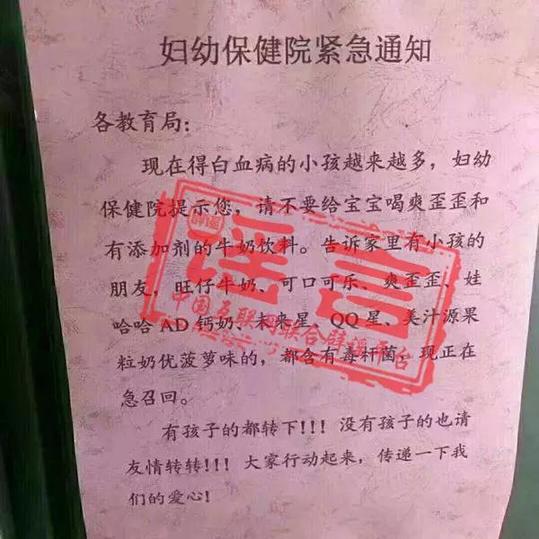 妇幼保健院紧急通知
各教育局：
现在得白血病的小孩越来越多，妇幼
保健院提示您，请不要给宝宝喝爽歪歪和
有添加剂的牛奶饮料。告诉家里有小孩的
朋友，旺仔牛奶、可口可乐、爽歪歪、娃
哈哈AD钙奶、未来星、QQ星、美汁源果
粒奶优菠萝味的，都含有毒杆菌。现正在
急召回。
有孩子的都转下!!! 没有孩子的也请
友情转转!!! 大家行动起来，传递一下我
们的爱心!
辟谣
谣言
中国互联网联合辟谣平台